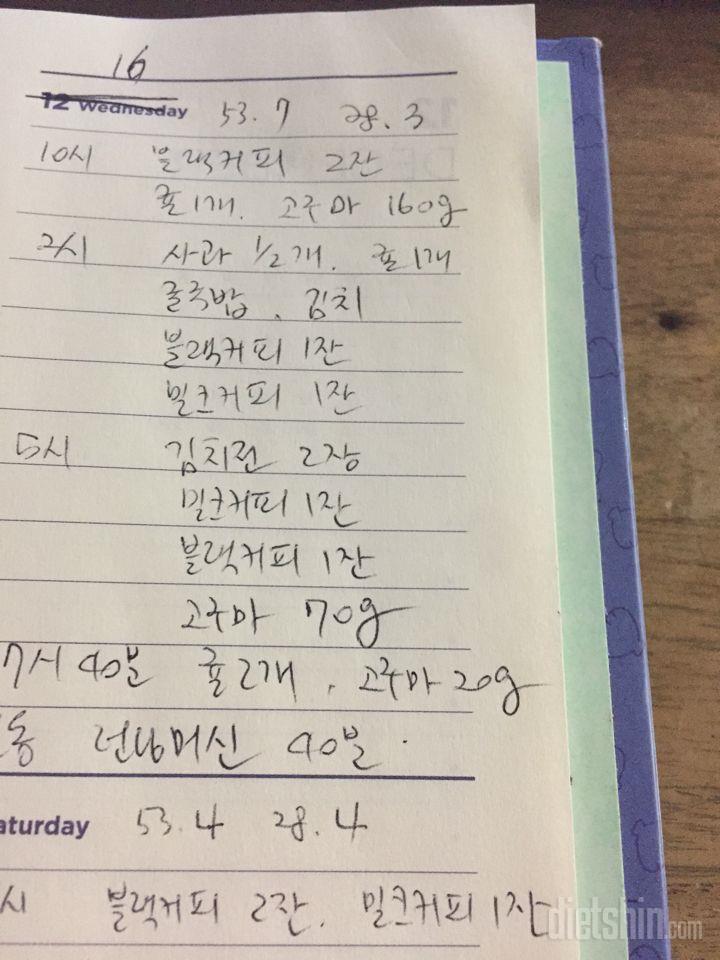 16
12 Wednesday 53.7 28.3
10시 블랙커피 2잔
귤1개. 고구마 160g
2시 사과 1/2개. 귤1개
굴국밥, 김치
블랙커피 1잔
밀크커피 1잔
5시 김치전 2장
밀크커피 1잔
블랙커피 1잔
고구마 70g
7시 40분 귤2개, 고구마 20g
동 런닝머신 40분.
aturday 53.4 28.4
시 블랙커피 2잔. 밀크커피 1잔
dietshin.com